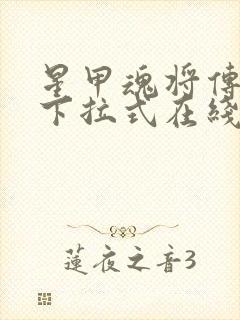 星甲魂将傳
下拉式在綫
蓮夜之音3